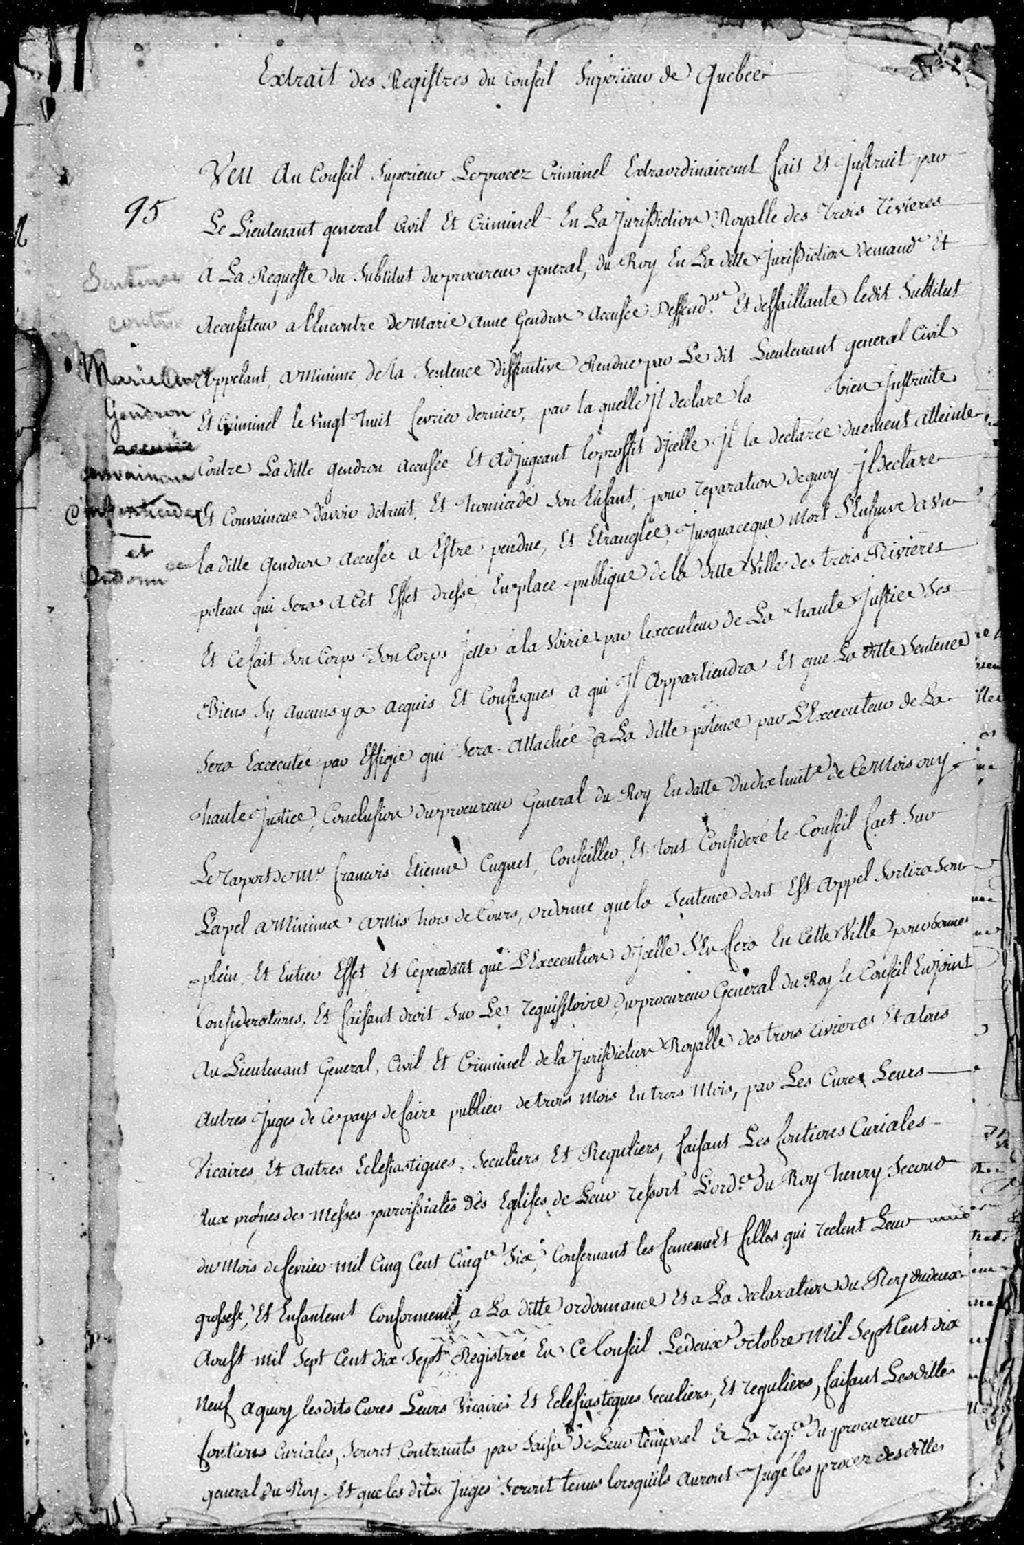 Extrait des Registres du Conseil Superieur de Quebec
Veu Au Conseil Superieur Le procez Criminel Extraordinairement fait Et Instruit par
95
Le Lieutenant general Civil Et Criminel En La Jurisdiction Royalle des trois rivieres
Sentence
A La Requeste du Substitut du procureur general, du Roy En La ditte Jurisdiction demandr Et
contre
Accusateur a l'Encontre de Marie Anne Gendron Accusée Deffendsse Et deffaillante ledit Substitut
Marie Anne
Appelant, a Minime de la Sentence diffinitive Rendue par Le dit Lieutenant general Civil
Gendron
Et Criminel le vingt huit fevrier dernier, par laquelle Il declare la bien Instruite
accusée
Contre La ditte gendron Accusée Et Adjugeant le proffit d'Icelle Il la declarée duement Atteinte
convaincue
Et Convaincue d'avoir detruit, Et homicidé Son Enfant, pour reparation de quoy Il declare
d'infanticide
la ditte gendron accusée a Estre pendue, Et Etranglée, Jusqu'aceque Mort S'Ensuive a Une
et
ordonne
poteau qui Sera A Cet Effet dressé En place publique de la ditte Ville des trois Rivieres
Et Ce fait Son Corps Son Corps jetté a la Voirie par l'executeur de La haute Justice Ses
Biens Sy Aucuns y a acquis Et Confisques a qui Il Appartiendra Et que La ditte Sentence
Sera Executée par Effigie qui Sera Attachée a La ditte potence par L'Executeur de La
haute Justice, Conclusion du procureur General du Roy En datte du dix huite de Ce Mois ouy
Le raport de Me francois Etienne Cugnet, Conseiller, Et tout Consideré le Conseil faet Sur
L'apel a Minima a mis hors de Cours, ordonne que la Sentence dont Est Appel Sortira Son
plein Et Entier Effet Et Cependant que L'Execution d'Icelle S'En fera En Cette Ville pour bonnes
Considerations, Et faisant droit Sur Le requisitoire du procureur General du Roy le Conseil Enjoint
Au Lieutenant General, Civil Et Criminel de la Jurisdiction Royalle des trois rivieres Et a tous
Autres Juges de Ce pays de faire publier de trois Mois En trois Mois, par Les Cures Leurs
Vicaires Et Autres Eclesiastiques, Seculiers Et Reguliers, faisant Les fontions Curiales
Aux prosnes des Messes parroissiales des Eglises de Leur ressort L'ordce du Roy henry Second
du Mois de fevrier mil Cinq Cent Cinqte Six, Consernant les femmes Et filles qui recelent Leur
grossesse, Et Enfantent Conformement, a La ditte ordonnance Et a La declaration du Roy du deux
Aoust mil Sept Cent dix Sept Registrée En Ce Conseil Le deux octobre Mil Sept Cent dix
Neuf a quoy les dits Cures Leurs Vicaires Et Eclesiastiques Seculiers, Et reguliers, faisant Les dittes
fontions Curiales, Seront Contraints par Saisie de Leur temporel a La reqte du procureur
general du Roy. Et que les dits Juges Seront tenus lorsquils auront Jugé les procez des dittes